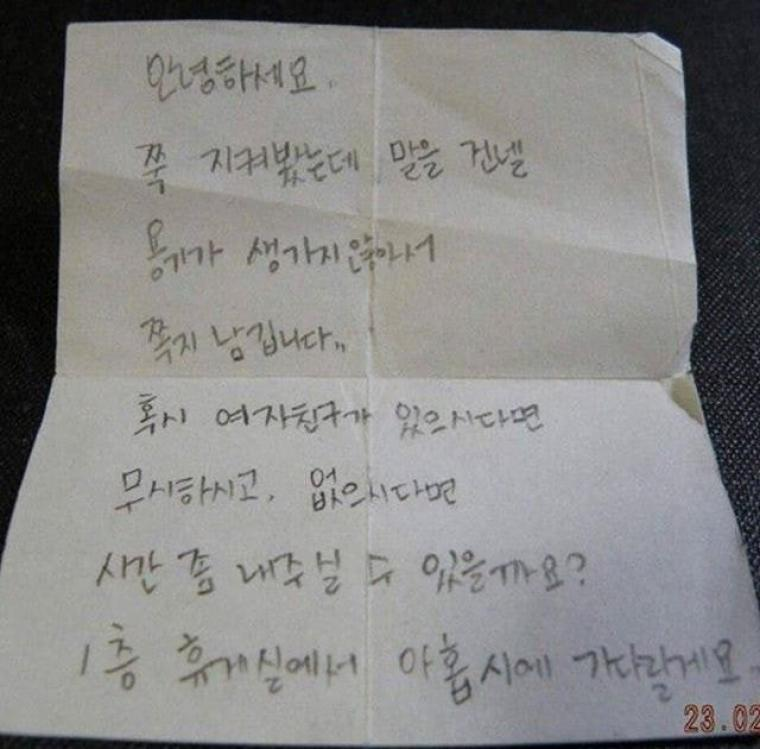 안녕하세요.
쭉 지켜봤는데 말을 건넬
용기가 생기지 않아서
쪽지 남깁니다,,
혹시 여자친구가 있으시다면
무시하시고, 없으시다면
시간 좀 내주실 수 있을까요?
1층 휴게실에서 아홉시에 기다릴게요.
23.02